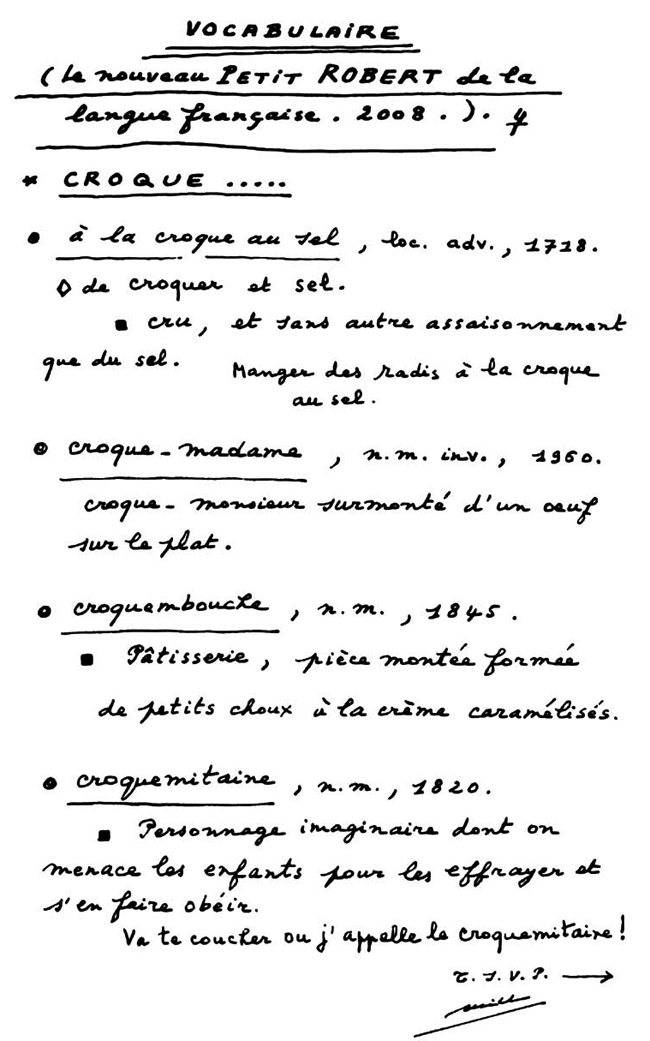 VOCABULAIRE
(le nouveau PETIT ROBERT de la
langue française. 2008.).
* CROQUE .....
• à la croque au sel, loc. adv., 1718.
◊ de croquer et sel.
■ cru, et sans autre assaisonnement
que du sel. Manger des radis à la croque
au sel.
• croque-madame, n.m. inv., 1960.
croque-monsieur surmonté d'un œuf
sur le plat.
• croquembouche, n.m., 1845.
■ Pâtisserie, pièce montée formée
de petits choux à la crème caramélisés.
• croquemitaine, n.m., 1820.
■ Personnage imaginaire dont on
menace les enfants pour les effrayer et
s'en faire obéir.
Va te coucher ou j'appelle le croquemitaine!
T.S.V.P. →